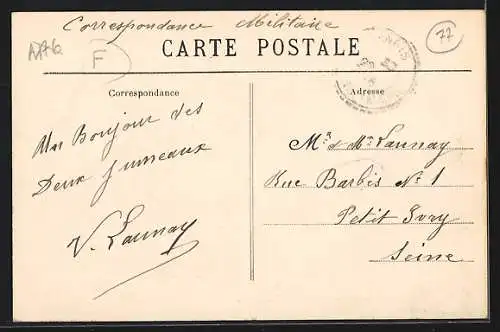 Correspondance Militaire
F
77
CARTE POSTALE
Correspondance
Adresse
Un Bonjour des
Deux Jumeaux
V. Launay
Mr et Me Launay
Rue Barbès No 1
Petit Ivry
Seine